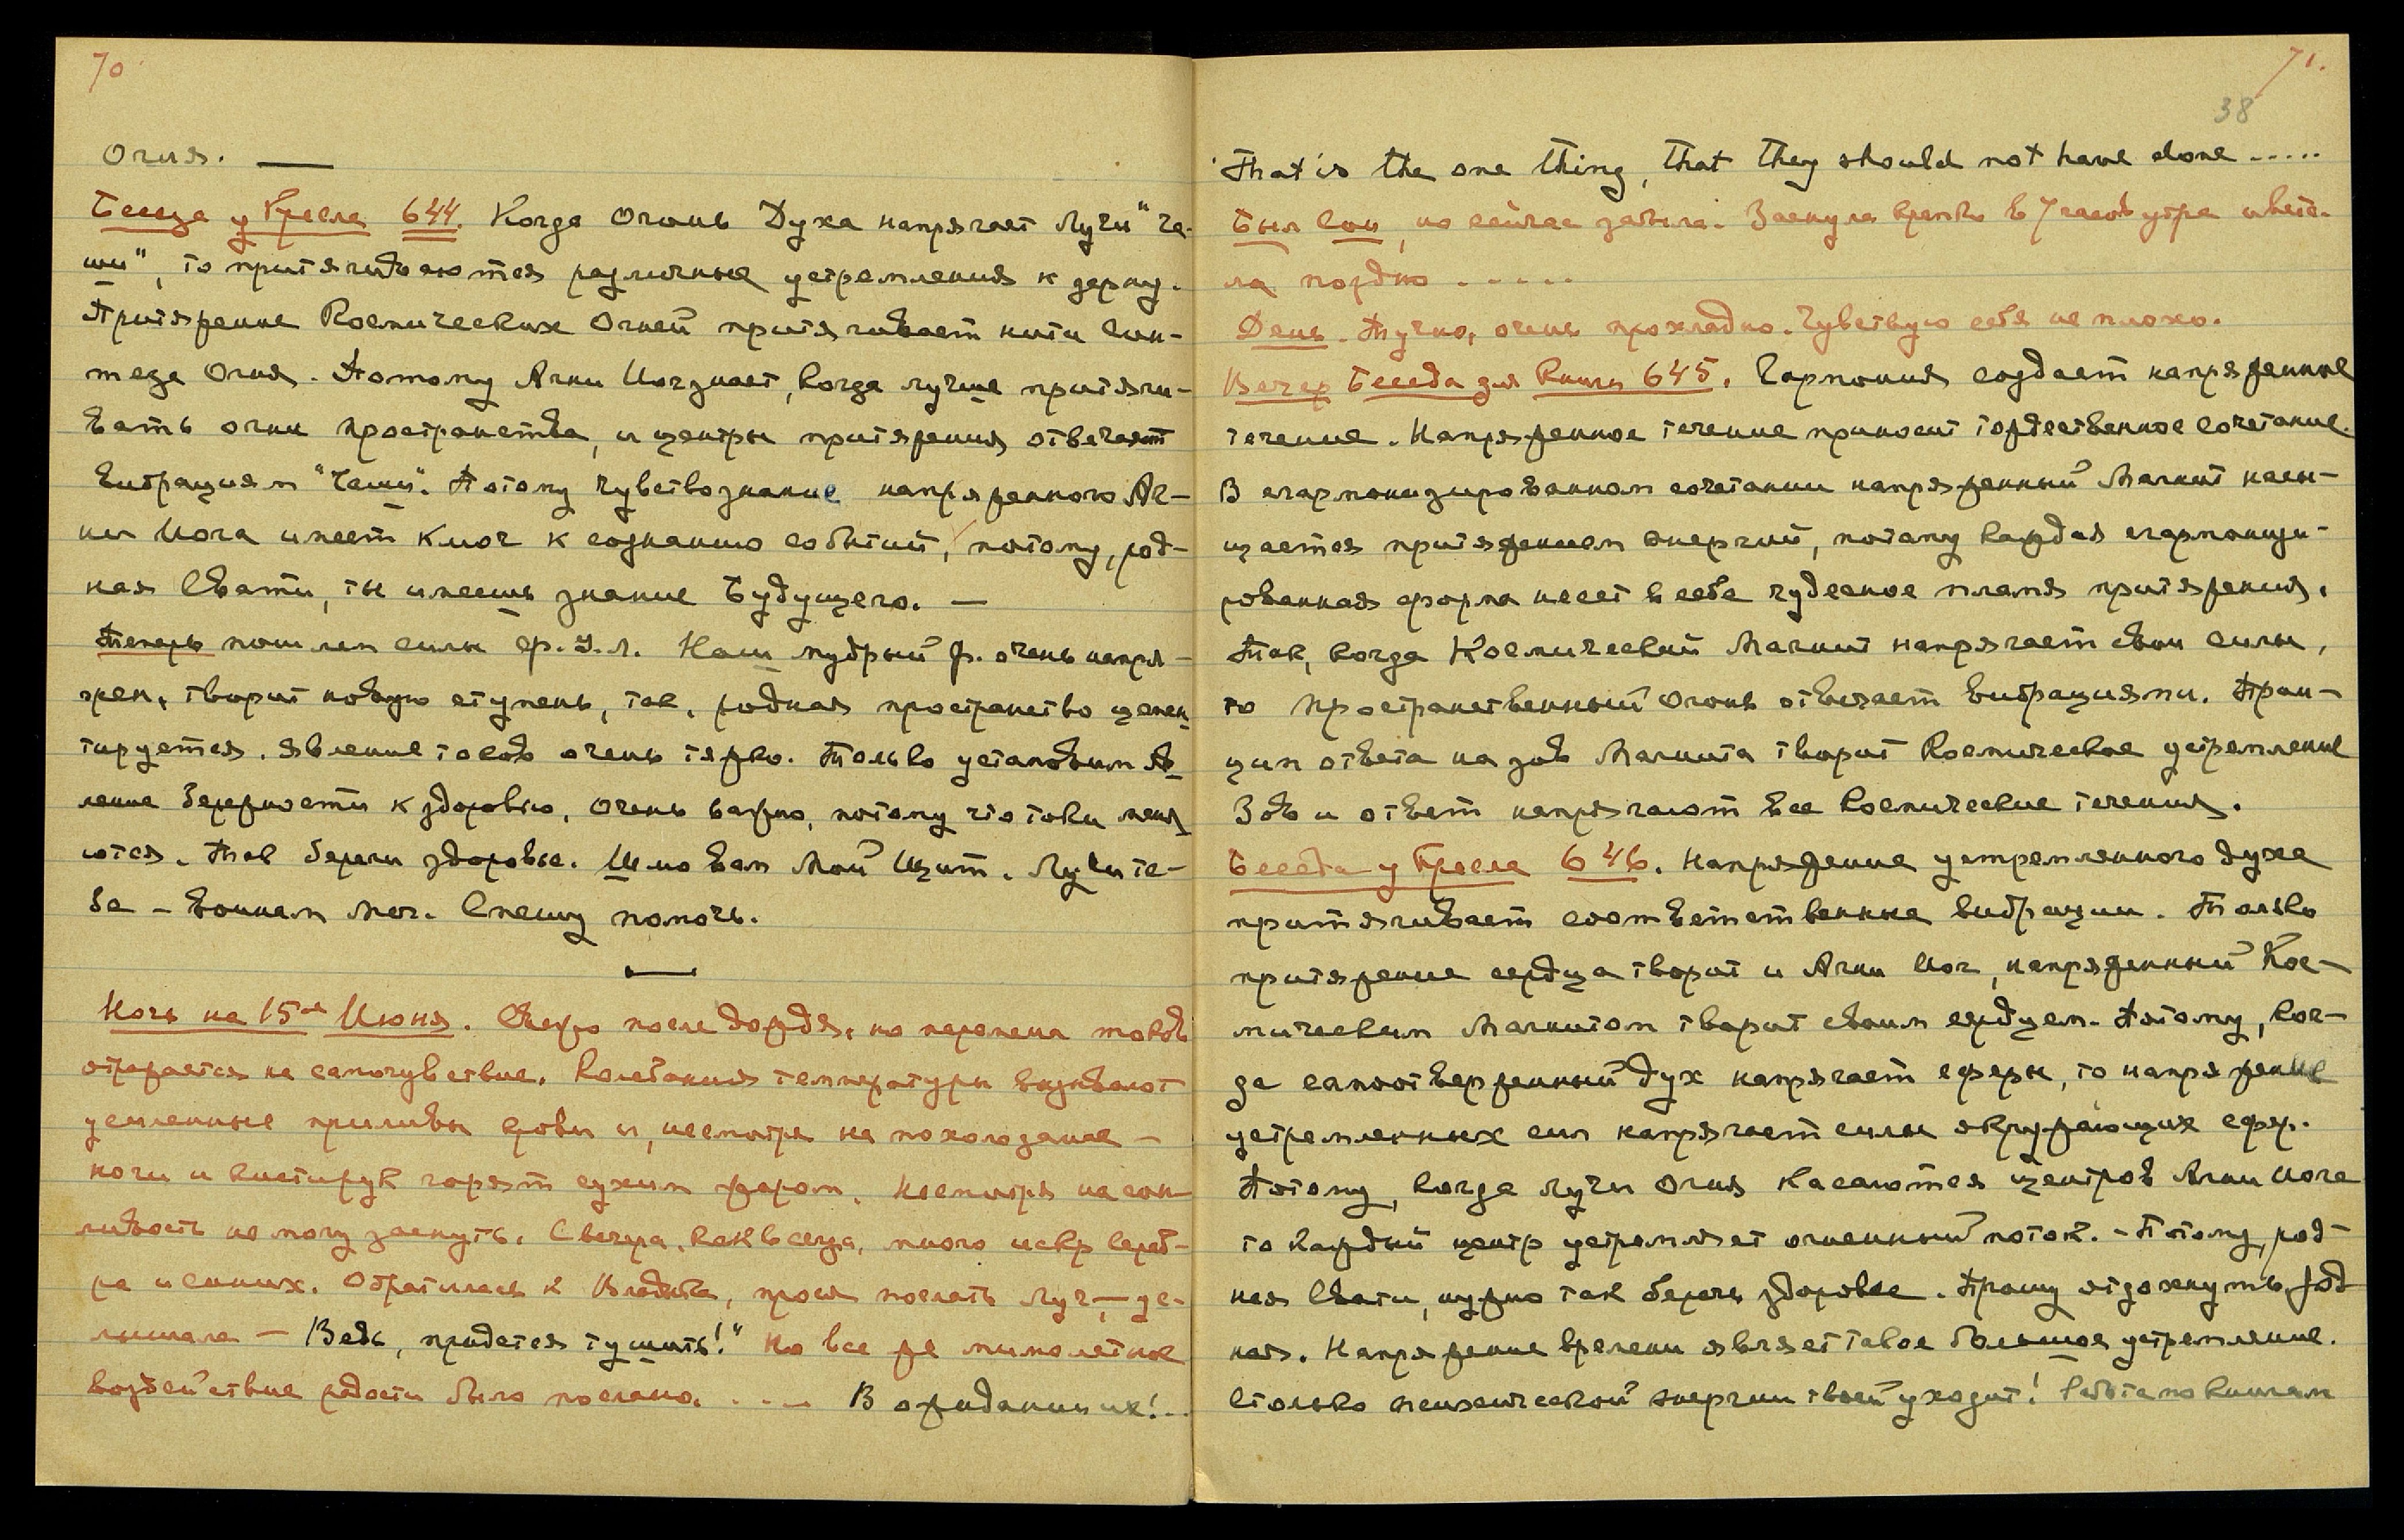 70
Огня. —
Беседа у Кресла 644. Когда Огонь Духа напрягает Лучи "Ча-
ши", то притягиваются различные устремления к зерну.
Притяжение Космических Огней притягивает нити Син-
теза Огня. Потому Агни Йог знает, когда лучше притяги-
вать огни пространства, и центры притяжения отвечают
вибрациям "Чаши". Потому чувствознание напряженного Аг-
ни Йога имеет ключ к сознанию событий, потому, род-
ная Свати, ты имеешь знание Будущего. —
Теперь пошлем силы ср. У. Л. Наш мудрый ф. очень напря-
жен, творит новую ступень, так, родная пространство цемен-
тируется. Явление токов очень тяжко. Только установим яв-
ление бережности к здоровью, очень важно, потому что токи меня-
ются. Так береги здоровье. Шлю вам Мой Щит. Лучи те-
бе — воинам меч. Спешу помочь.
—
Ночь на 15ое Июня. Свежо после дождя, но перемена токов
отражается на самочувствие. Колебания температуры вызывают
усиленные приливы крови и, несмотря на похолодание —
ноги и кисти рук горят сухим жаром. Несмотря на сон-
ливость не могу заснуть. С вечера, как всегда, много искр сереб-
ра и синих. Обратилась к Владыке, прося послать луч, — ус-
лышала — Ведь, придется тушить!" Но все же мимолетное
воздействие радости было послано. .... В ожидании их!..
71.
38
That is the one thing, that they should not have done .....
Был Сон, но сейчас забыла. Заснула крепко в 7 часов утра и вста-
ла поздно .....
День. Тучно, очень прохладно. Чувствую себя не плохо.
Вечер Беседа для Книги 645. Гармония создает напряженное
течение. Напряженное течение приносит торжественное сочетание.
В сгармонизированном сочетании напряженный Магнит насы-
щается притяжением энергий, потому каждая сгармонизи-
рованная форма несет в себе чудесное пламя притяжения.
Так, когда Космический Магнит напрягает свои силы,
то Пространственный Огонь отвечает вибрациями. Прин-
цип ответа на зов Магнита творит Космическое устремление
Зов и ответ напрягают все Космические течения.
Беседа у Кресла 646. Напряжение устремленного духа
притягивает соответственные вибрации. Только
притяжение сердца творит и Агни Йог, напряженный Кос-
мическим Магнитом творит своим сердцем. Потому, ког-
да самоотверженный дух напрягает сферы, то напряжение
устремленных сил напрягает силы окружающих сфер.
Потому, когда лучи Огня касаются центров Агни Йога
то каждый центр устремляет огненный поток. — Потому, род-
ная Свати, нужно так беречь здоровье. Прошу отдохнуть, род-
ная. Напряжение времени являет такое большое устремление.
Столько психической энергии твоей уходит! Работа по книгам